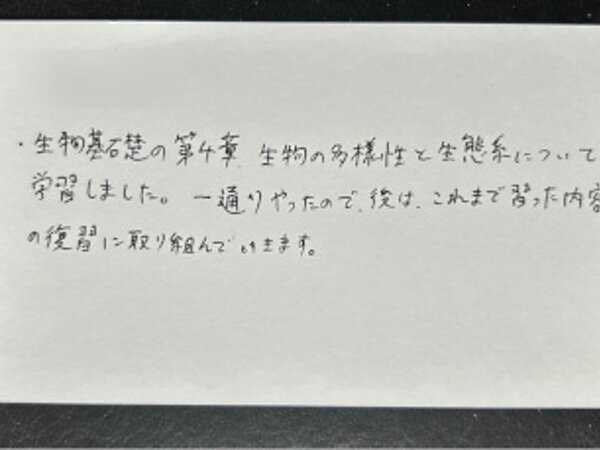 ・生物基礎の第4章、生物の多様性と生態系について
学習しました。一通りやったので、後は、これまで習った内容
の復習に取り組んでいきます。